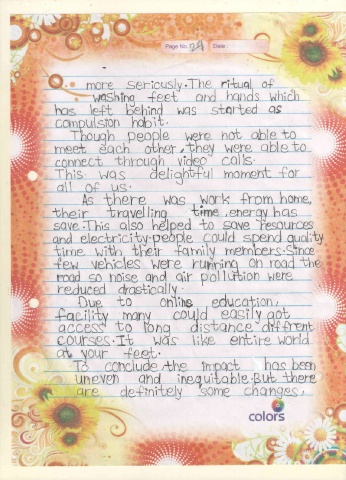 Page No. 29 Date:
more seriously. The ritual of
washing feet and hands which
has left behind was started as
compulsion habit.
Though people were not able to
meet each other, they were able to
connect through video calls.
This was delightful moment for
all of us.
As there was work from home,
their travelling time, energy has
save. This also helped to save resources
and electricity. people could spend quality
time with their family members. Since
few vehicles were running on road the
road so noise and air pollution were
reduced drastically.
Due to online education,
facility many could easily got
access to long distance diffrent
courses. It was like entire world
at your feet.
To conclude the impact has been
uneven and inequitable. But there
are definitely some changes,
colors